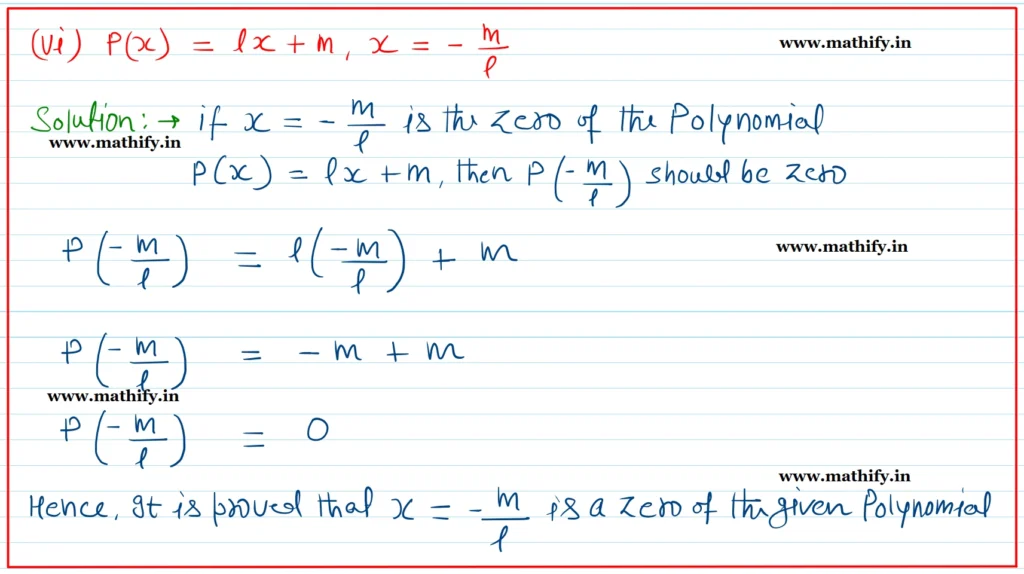 (vi) P(x) = lx + m, x = - m/l
www.mathify.in
Solution: → if x = - m/l is the zero of the Polynomial
www.mathify.in
P(x) = lx + m, then P(- m/l) should be zero
P(- m/l) = l(- m/l) + m
www.mathify.in
P(- m/l) = - m + m
www.mathify.in
P(- m/l) = 0
www.mathify.in
Hence, It is proved that x = - m/l is a zero of the given Polynomial